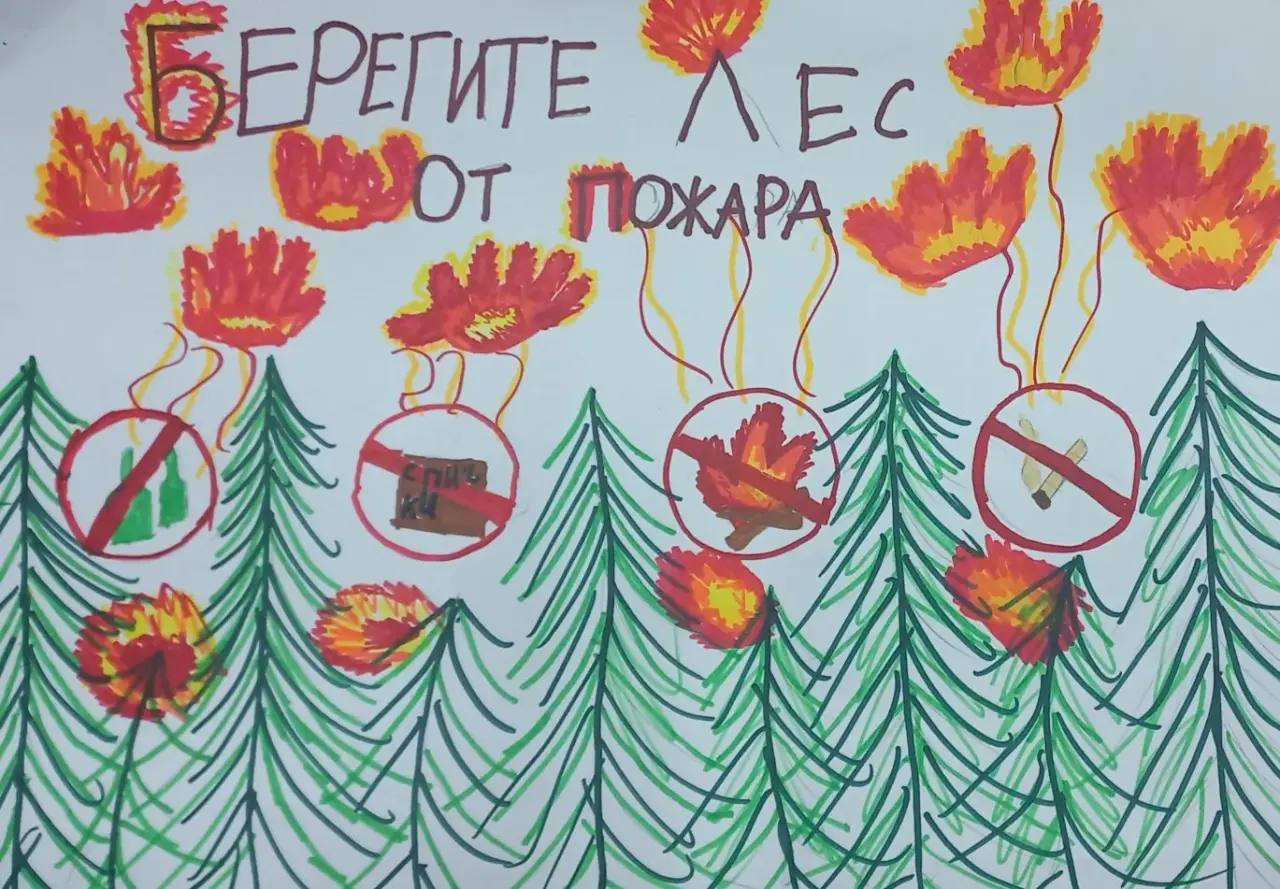 БЕРЕГИТЕ ЛЕС
ОТ ПОЖАРА
СПИЧ
КИ